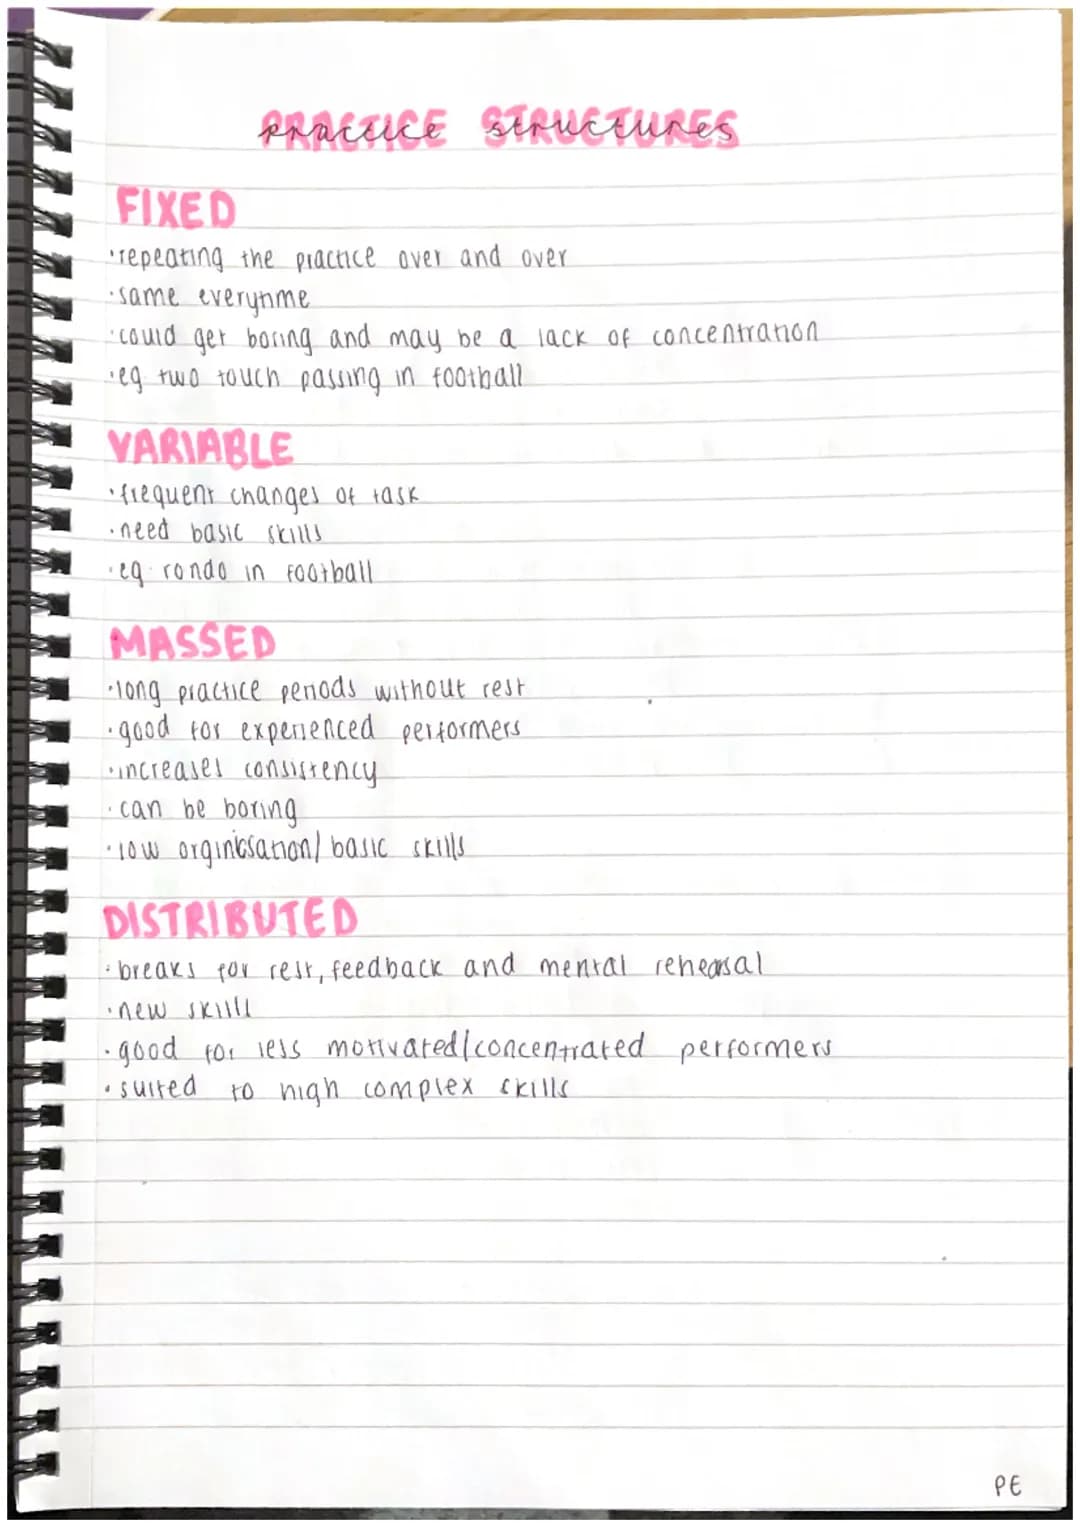 PRACTICE STRUCTURES
practice structures
FIXED
·repeating the practice over and over
·same everytime
·could get boring and may be a lack of concentration
·eg two touch passing in football
VARIABLE
·frequent changes of task
·need basic skills
·eg. rondo in football
MASSED
·long practice periods without rest
·good for experienced performers
·increases consistency
·can be boring
·low orginisation/basic skills
DISTRIBUTED
·breaks for rest, feedback and mental rehearsal
·new skill
·good for less motivated/concentrated performers
·suited to high complex skills
PE